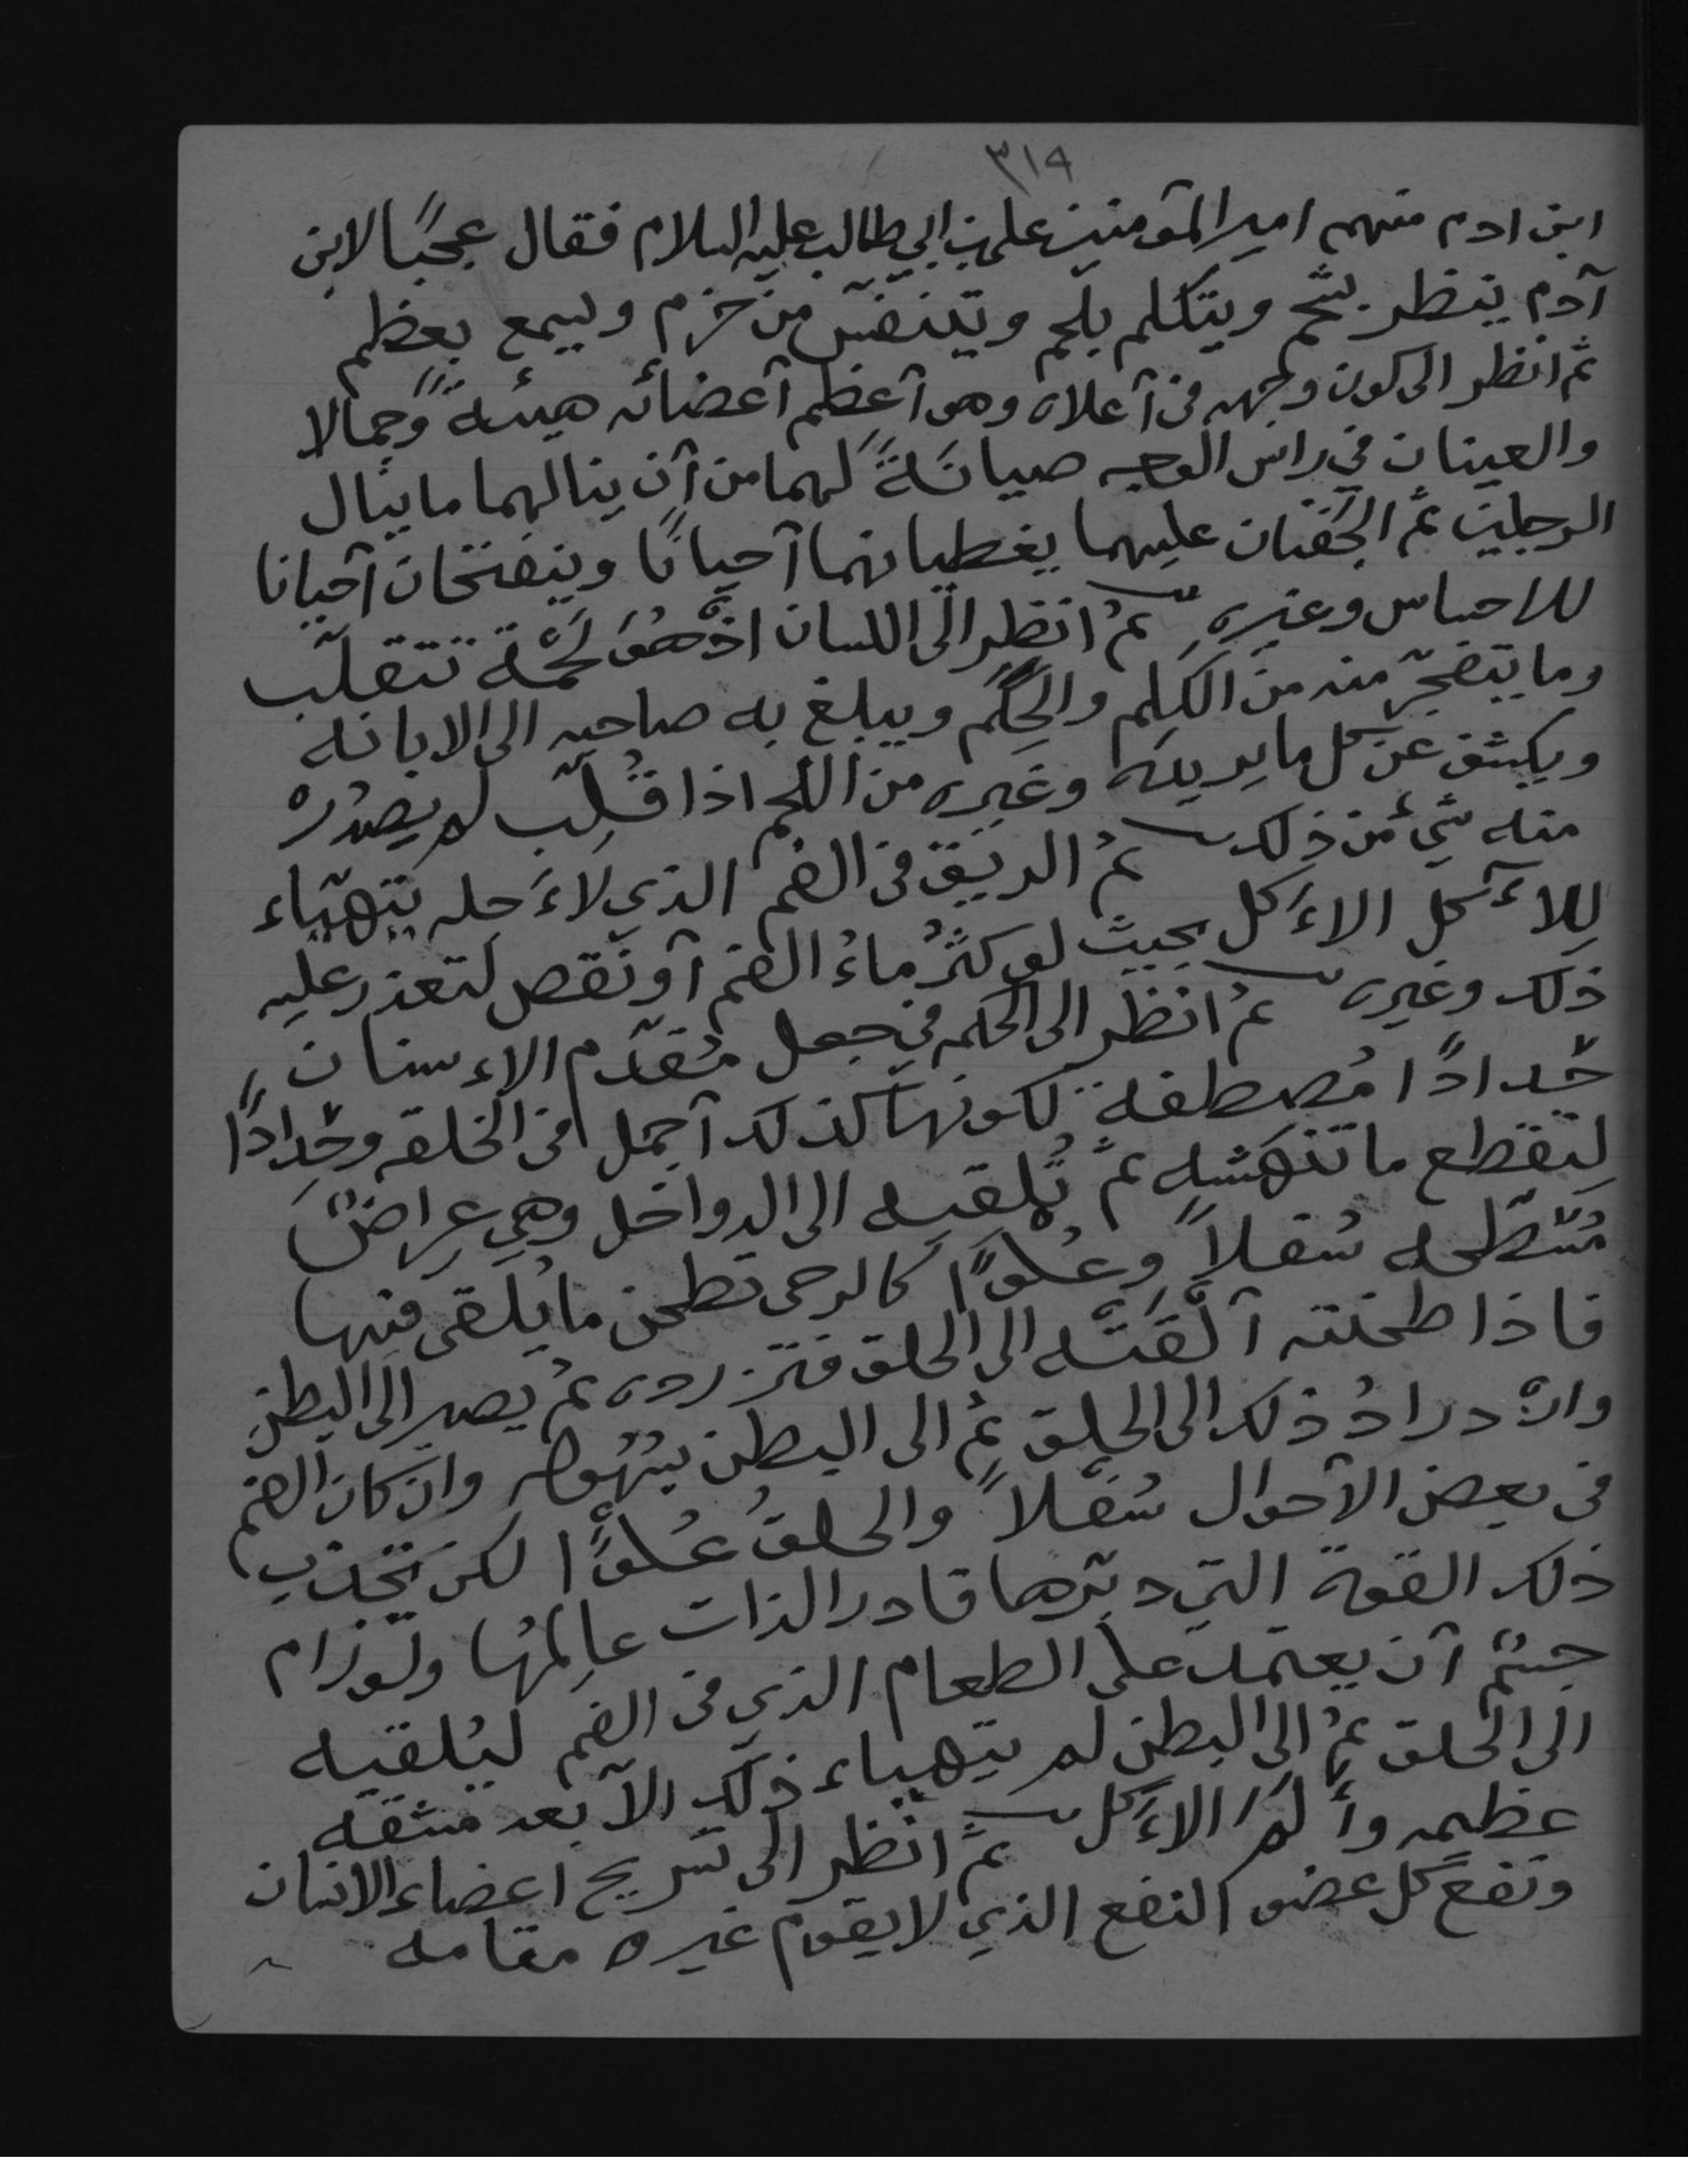 ٣١٩
ابن ادم منهم امير المؤمنين علي بن ابي طالب عليه السلام فقال عجبًا لابن
آدم ينظر بشحم ويتكلم بلحم ويتنفس من خرم ويسمع بعظم
ثم انظر الى كون وجهه في آعلاه وهو آعظم آعضائه هيئةً وجمالا
والعينان في راس الوجه صيانَةً لهما من آن ينالهما ما ينال
الرجلين ثم الجفنان عليهما يغطيانهما آحيانًا وينفتحان آحيانا
للاحساس وغيره ثم انظر الى اللسان اذْ هُوَ لَحْمة تتقلّب
وما يتفجّر منه من الكلِم والحِكَم ويبلغ به صاحبه الى الابانه
ويكشف عن كل ما يريده وغيره من اللحم اذا قُلِّب لم يصدُرْ
منه شيءٌ من ذلك ثم الريق في الفم الذي لاءَجله يتهيّاء
لِلاءٓكل الاءَكل بحيث لو كثُر ماءُ الفم آو نَقص لتعذر عليه
ذلك وغيره ثم انظر الى الحكمه في جعل مُقدّم الاءسنان
حُدادًا مُصطفة لكونها كذلك آجمل في الخلقه وحُدادًا
لِتقطع ما تنهَشه ثم تُلقيه الى الدواخل وهي عِراضٌ
مُسَطّحه سُفلاً وعُلْوًا كالرحى تطحن ما يُلقى فيها
فاذا طحنته آلقَتْه الى الحلق فتزردهُ ثم يصير الى البطن
واِزْدِرادُ ذلك الى الحلق ثم الى البطن بسُهُوله وان كان الفم
في بعض الآحوال سُفلاً والحلقُ عُلوًا لكن تجذب
ذلك القوة التي دبّرها قادر الذات عالمُها ولو رام
حيٌّ آن يعتمد على الطعام الذي في الفم ليُلقيه
الى الحلق ثم الى البطن لم يتهياء ذلك الاّ بعد مشقه
عظيمه وأَلَمِ الاءَكل ثم انظر الى تسريح اعضاء الانسان
ونفع كل عضو النفع الذي لا يقوم غيره مقامه